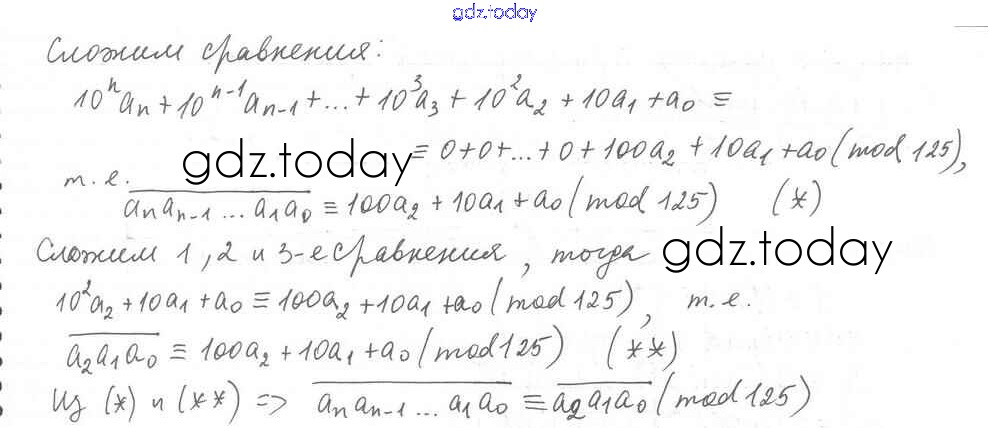 gdz.today
Сложим сравнения:
10ⁿaₙ + 10ⁿ⁻¹aₙ₋₁ + ... + 10³a₃ + 10²a₂ + 10a₁ + a₀ ≡
≡ 0 + 0 + ... + 0 + 100a₂ + 10a₁ + a₀ (mod 125),
gdz.today
т. е.
a̅ₙa̅ₙ₋₁...a̅₁a̅₀ ≡ 100a₂ + 10a₁ + a₀ (mod 125) (*)
Сложим 1, 2 и 3-е сравнения, тогда
gdz.today
10²a₂ + 10a₁ + a₀ ≡ 100a₂ + 10a₁ + a₀ (mod 125), т. е.
a̅₂a̅₁a̅₀ ≡ 100a₂ + 10a₁ + a₀ (mod 125) (**)
Из (*) и (**) => a̅ₙa̅ₙ₋₁...a̅₁a̅₀ ≡ a̅₂a̅₁a̅₀ (mod 125)